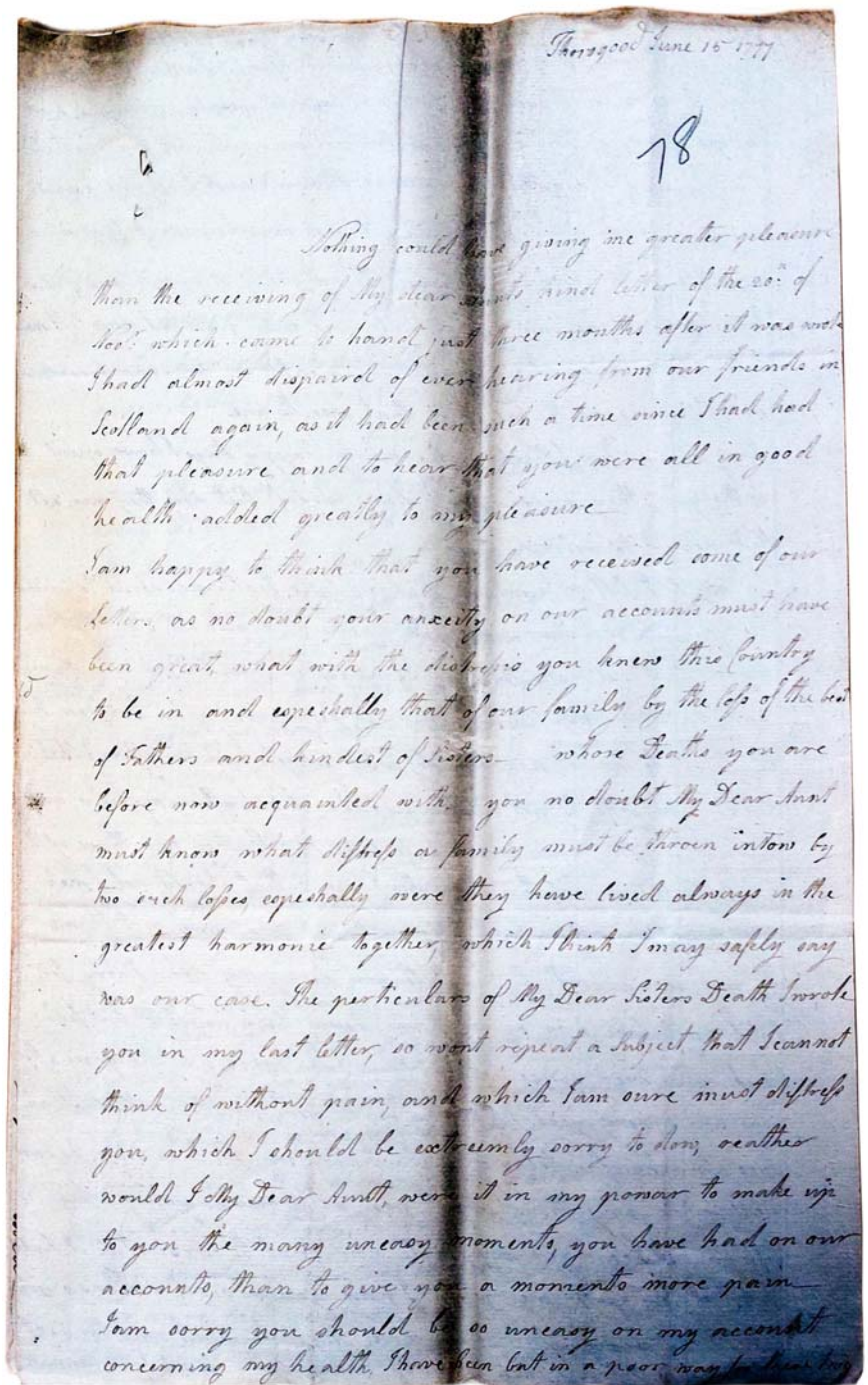 Thorogood June 15 1777
78
Nothing could have giving me greater pleasure
than the receiving of My dear Aunts kind letter of the 20th of
Novr which came to hand just three months after it was wrote
I had almost dispaird of ever hearing from our friends in
Scotland again, as it had been such a time since I had had
that pleasure and to hear that you were all in good
health added greatly to my pleasure
I am happy to think that you have received some of our
Letters, as no doubt your anxeity on our accounts must have
been great, what with the distress you knew this Country
to be in and espeshally that of our family by the loss of the best
of Fathers and kindest of Sisters whose Deaths you are
before now acquainted with, you no doubt My Dear Aunt
must know what distress a family must be throen intow by
two such losses, espeshally were they have lived always in the
greatest harmonie together, which I think I may safely say
was our case. The perticulars of My Dear Sisters Death I wrote
you in my last letter, so wont repeat a Subject that I cannot
think of without pain, and which I am sure must distress
you, which I should be extreemly sorry to dow, reather
would I My Dear Aunt, were it in my powar to make up
to you the many uneasy moments, you have had on our
accounts, than to give you a moments more pain
I am sorry you should be so uneasy on my account
concerning my health I have been but in a poor way for these